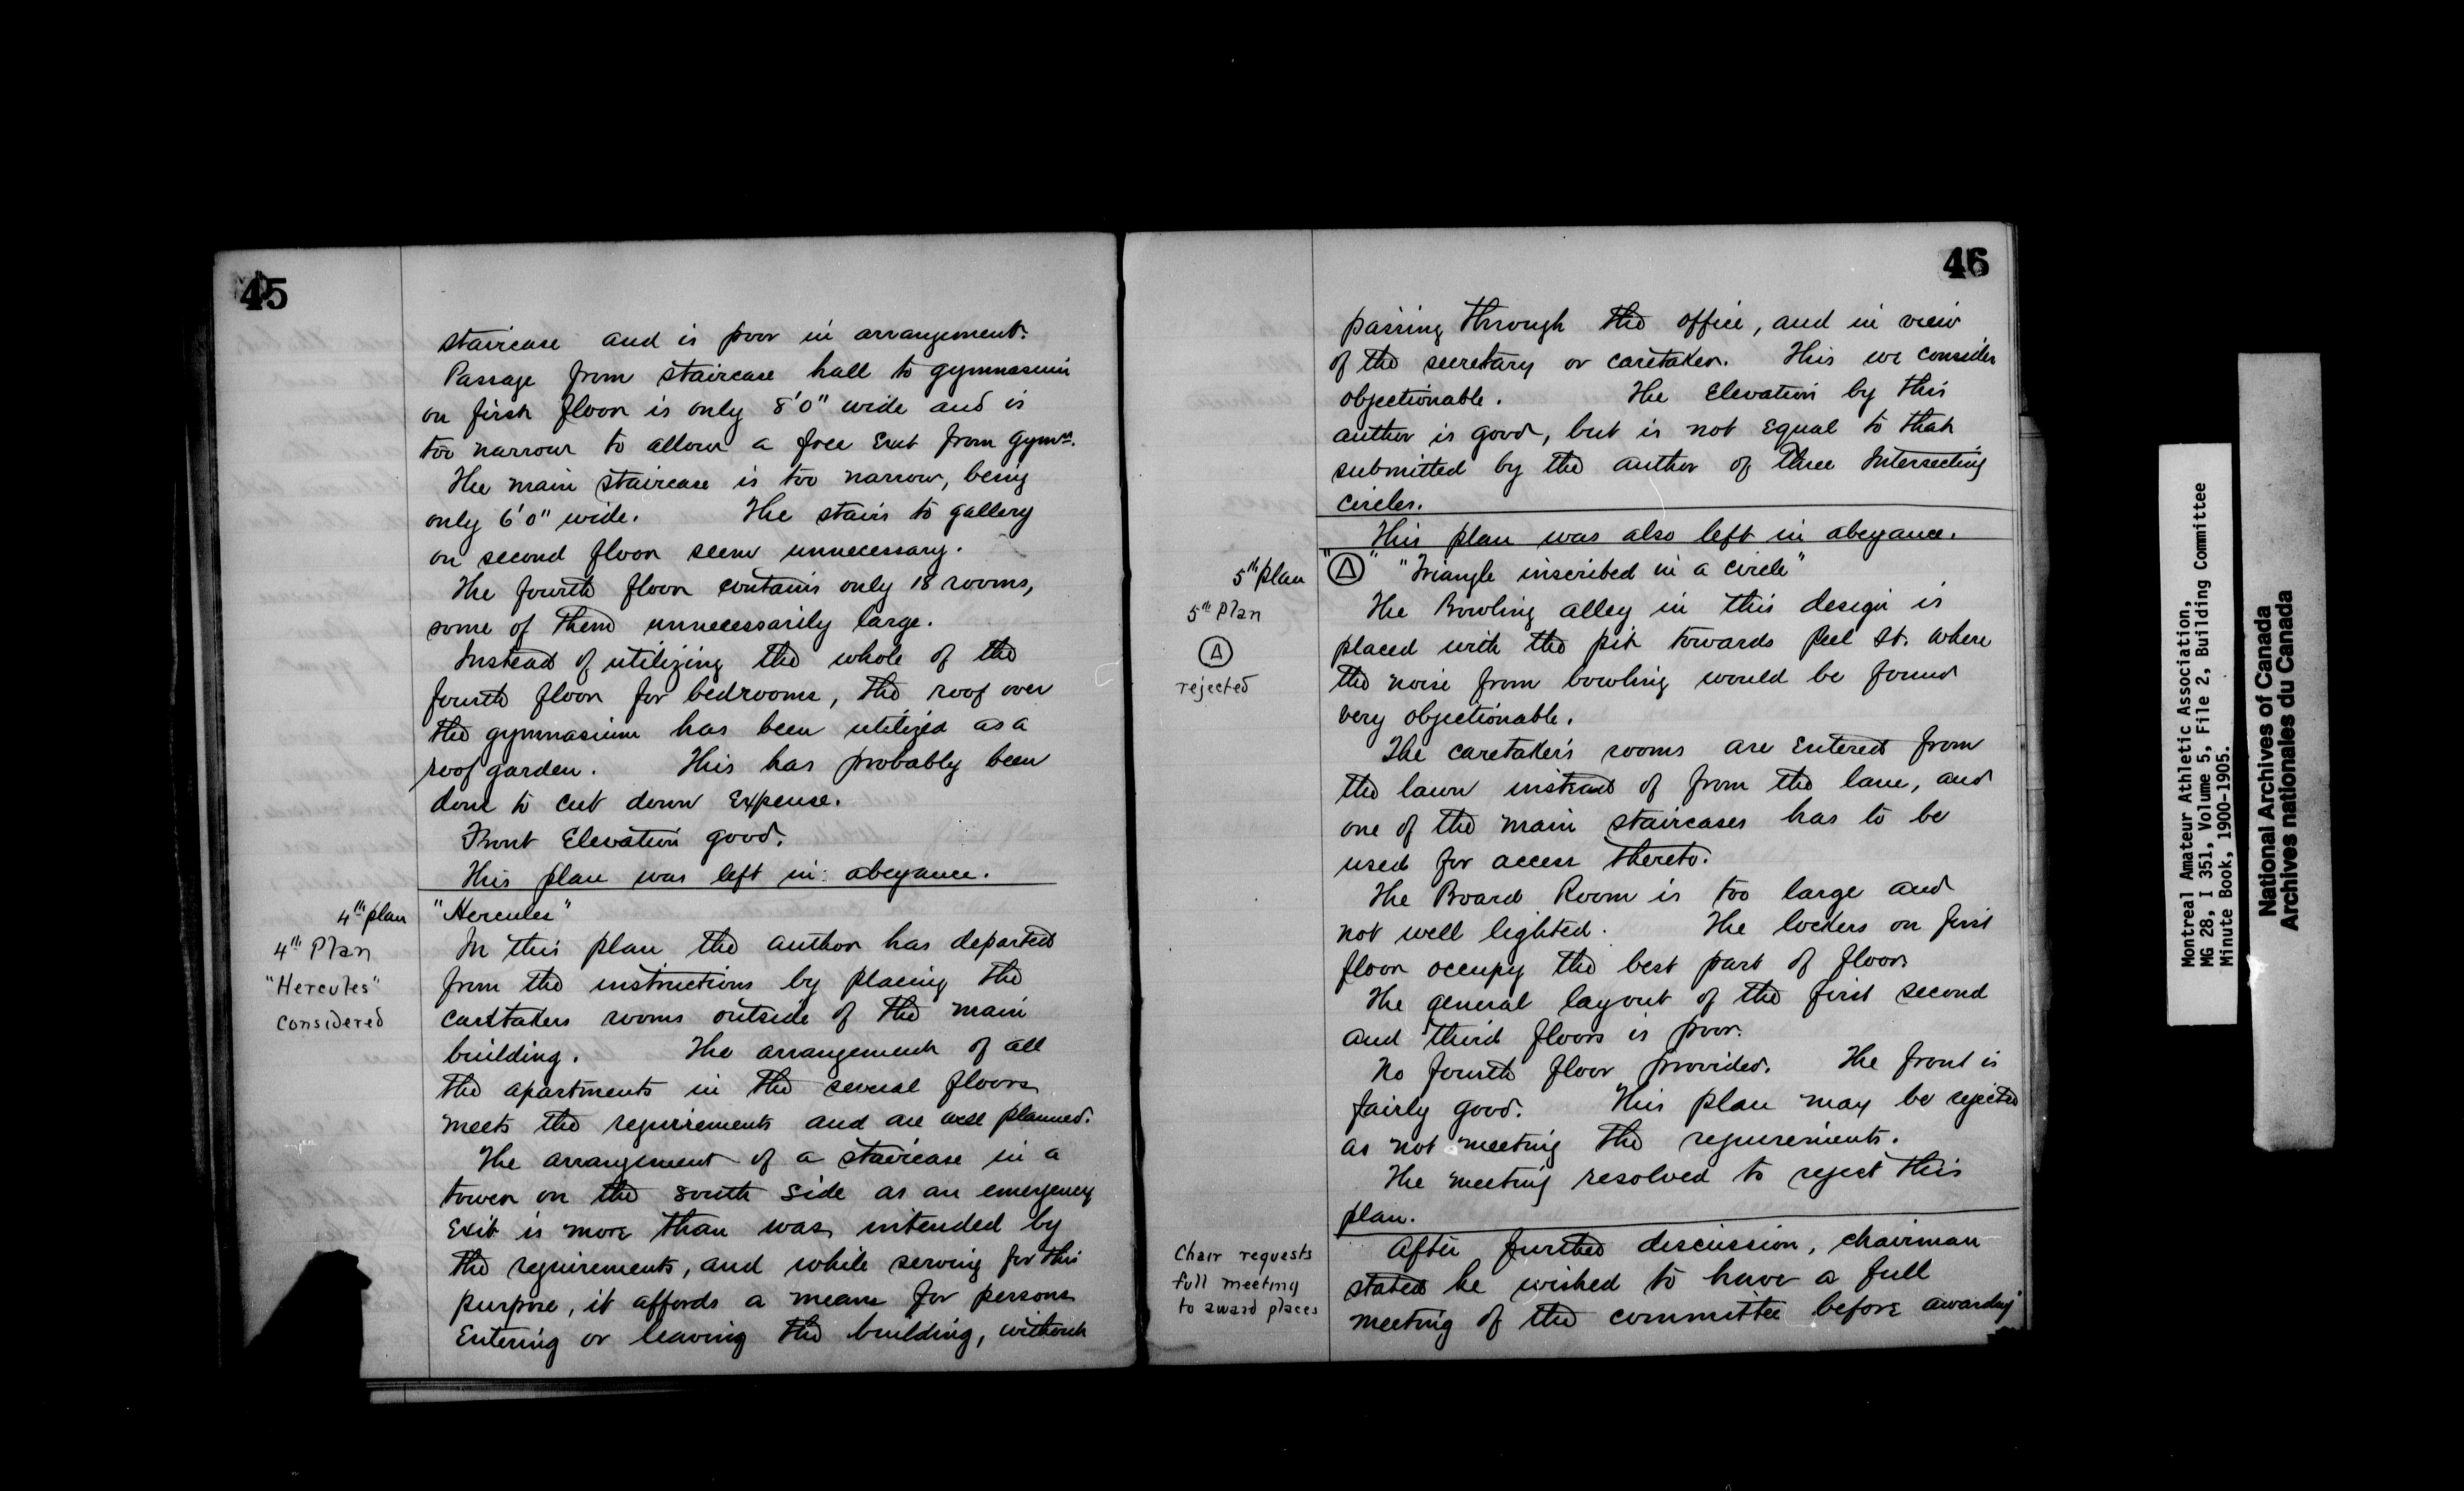 45
staircase and is poor in arrangement.
Passage from staircase hall to gymnasium
on first floor is only 8'0" wide and is
too narrow to allow a free Exit from gymn.
The main staircase is too narrow, being
only 6'0" wide. The stairs to gallery
on second floor seem unnecessary.
The fourth floor contains only 18 rooms,
some of them unnecessarily large.
Instead of utilizing the whole of the
fourth floor for bedrooms, the roof over
the gymnasium has been utilized as a
roof garden. This has probably been
done to cut down Expense.
Front Elevation good.
This plan was left in abeyance.
4th plan "Hercules"
4th Plan
"Hercules"
Considered
In this plan the author has departed
from the instructions by placing the
caretakers rooms outside of the main
building. The arrangement of all
the apartments in the several floors
meets the requirements and are well planned.
The arrangement of a staircase in a
tower on the south side as an emergency
Exit is more than was intended by
the requirements, and while serving for this
purpose, it affords a means for persons
Entering or leaving the building, without
46
passing through the office, and in view
of the secretary or caretaker. This we consider
objectionable. The Elevation by this
author is good, but is not Equal to that
submitted by the author of Three Intersecting
circles.
This plan was also left in abeyance.
5th plan "Δ" "Triangle inscribed in a circle"
5th Plan
Δ
rejected
The Bowling alley in this design is
placed with the pit towards Peel St. where
the noise from bowling would be found
very objectionable.
The caretaker's rooms are Entered from
the lawn instead of from the lane, and
one of the main staircases has to be
used for access thereto.
The Board Room is too large and
not well lighted. The lockers on first
floor occupy the best part of floor.
The general layout of the first second
and third floors is poor.
No fourth floor provided. The front is
fairly good. This plan may be rejected
as not meeting the requirements.
The meeting resolved to reject this
plan.
Chair requests
full meeting
to award places
After further discussion, chairman
stated he wished to have a full
meeting of the committee before awarding
Montreal Amateur Athletic Association,
MG 28, I 351, Volume 5, File 2, Building Committee
Minute Book, 1900-1905.
National Archives of Canada
Archives nationales du Canada